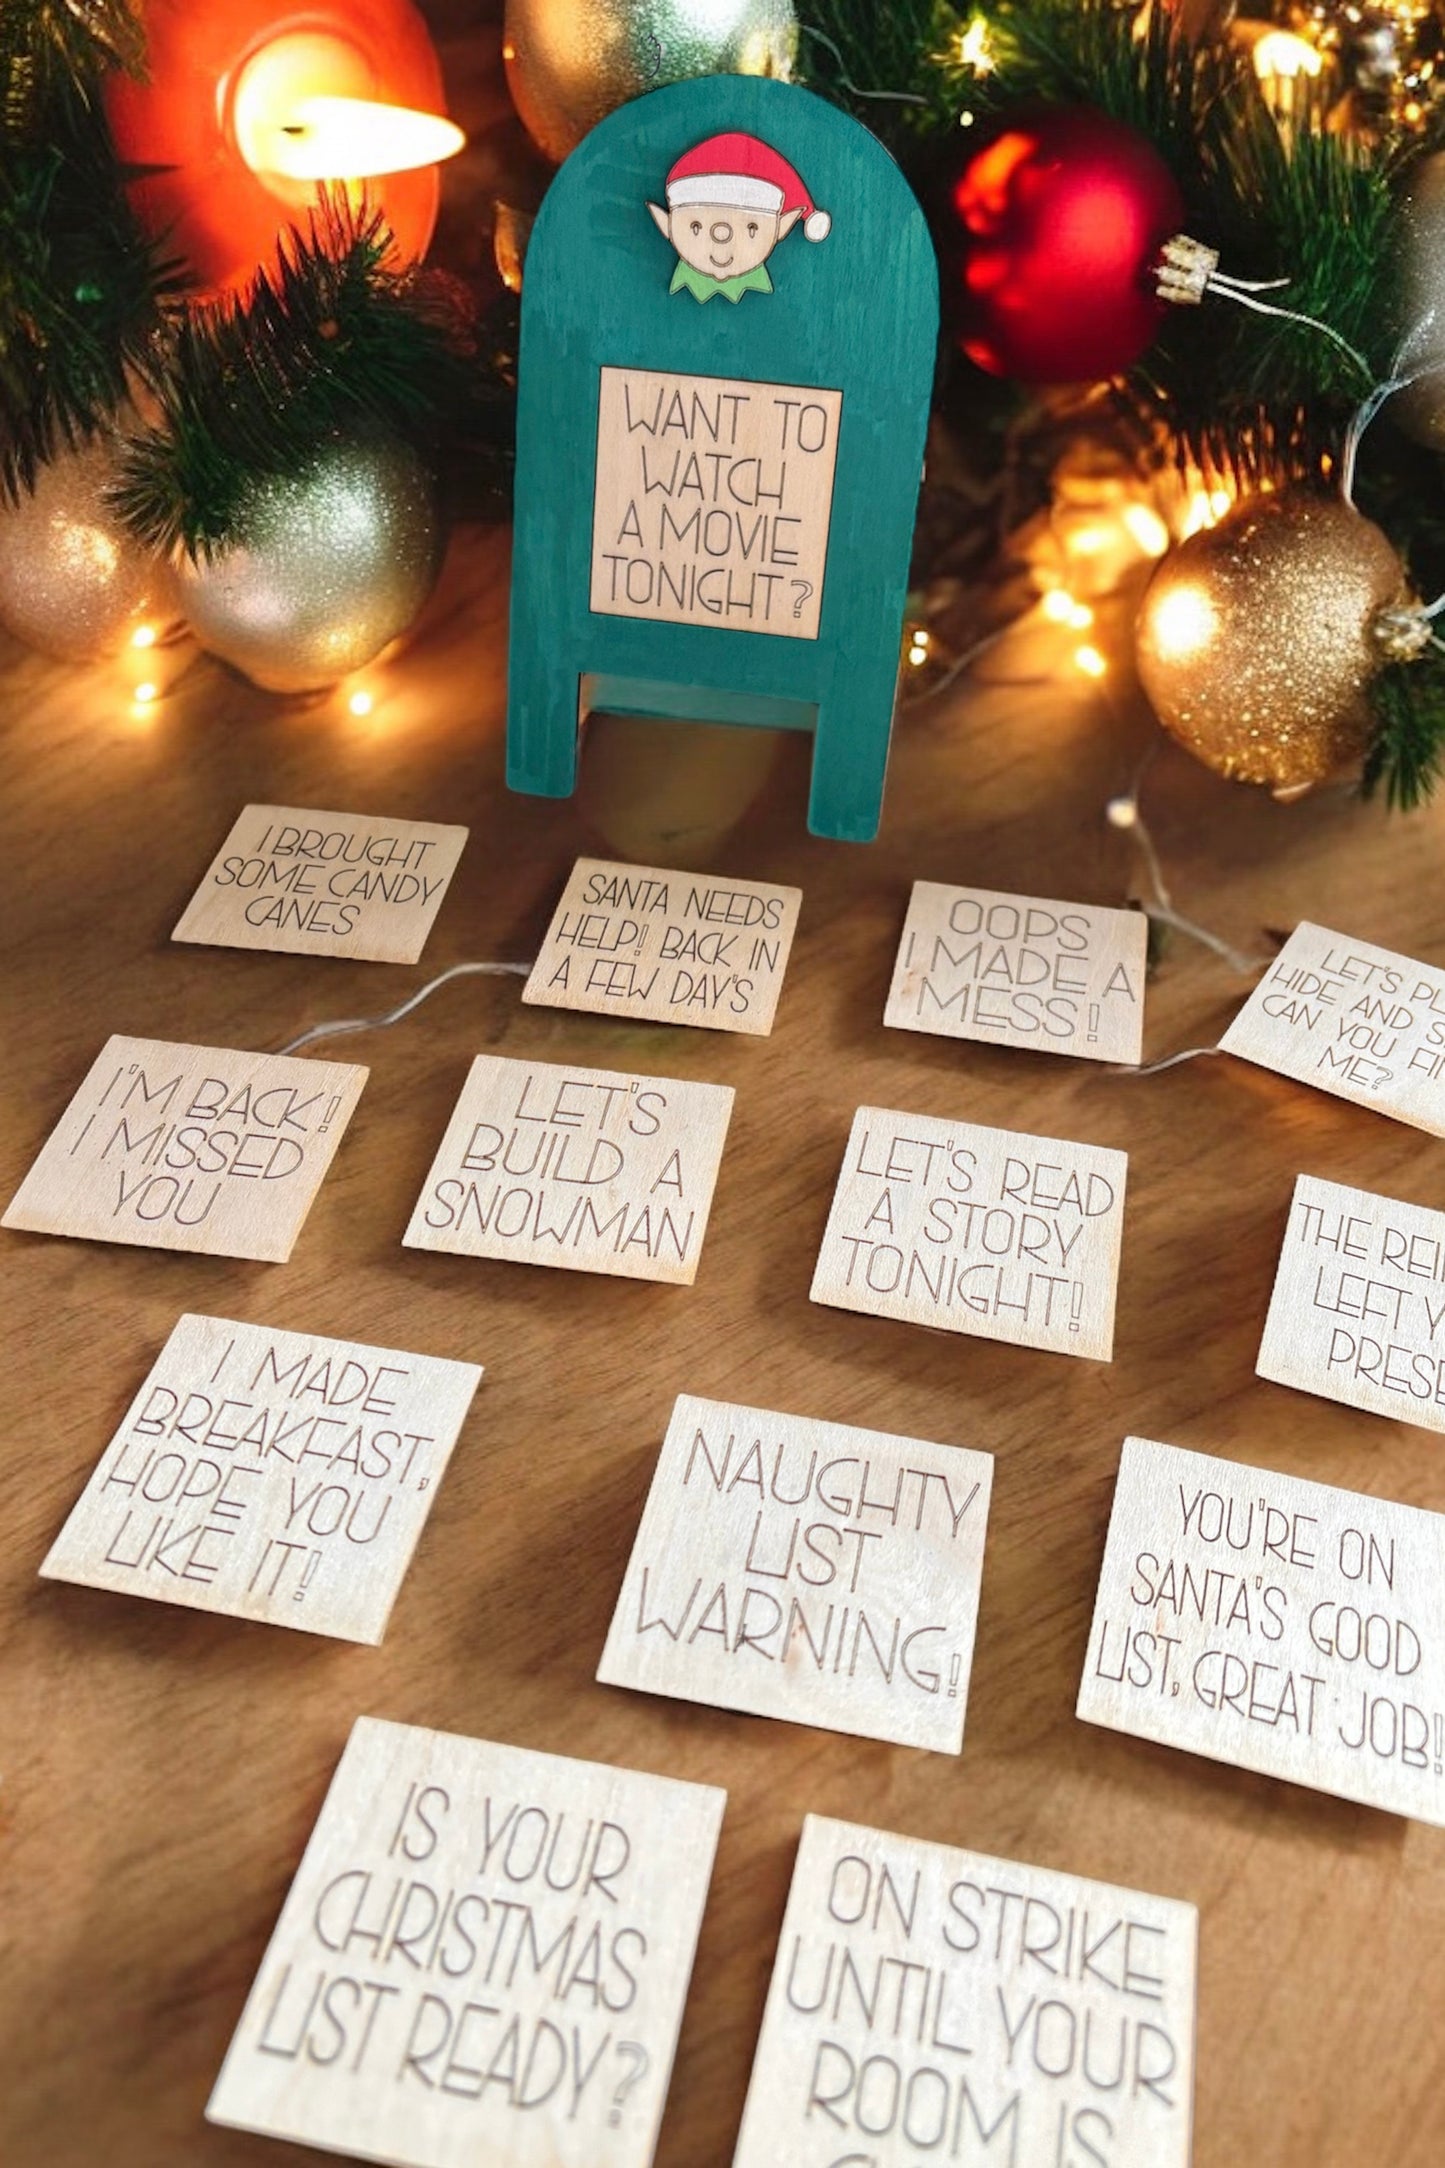 WANT TO
WATCH
A MOVIE
TONIGHT?
I BROUGHT
SOME CANDY
CANES
SANTA NEEDS
HELP! BACK IN
A FEW DAY'S
OOPS
I MADE A
MESS!
LET'S
HIDE AND
CAN YOU
ME?
I'M BACK!
I MISSED
YOU
LET'S
BUILD A
SNOWMAN
LET'S READ
A STORY
TONIGHT!
THE
LEFT
I MADE
BREAKFAST,
HOPE YOU
LIKE IT!
NAUGHTY
LIST
WARNING!
YOU'RE ON
SANTA'S GOOD
LIST, GREAT JOB!
IS YOUR
CHRISTMAS
LIST READY?
ON STRIKE
UNTIL YOUR
ROOM IS